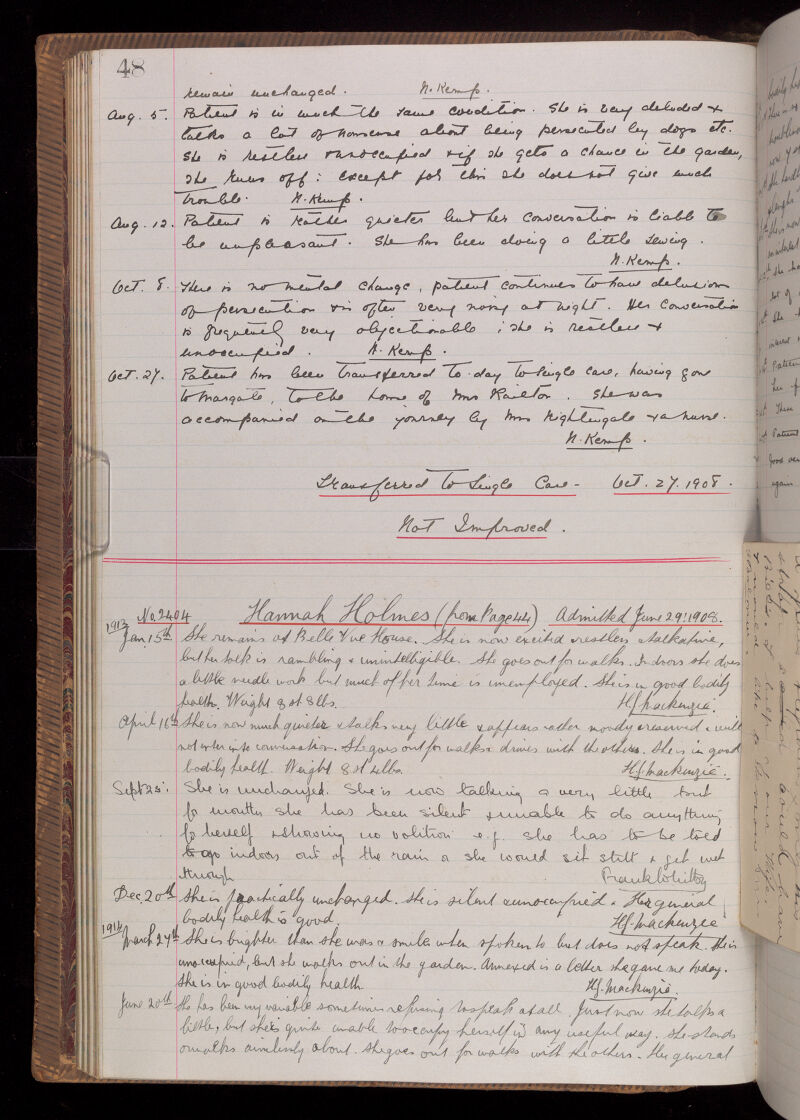 48
remain unchanged. N. Kemp.
Aug. 5. Patient is in much the same condition. She is very deluded &
talks a lot of nonsense about being persecuted by dogs etc.
She is restless & unoccupied & if she gets a chance in the garden,
she runs off: except for this she does not give much
trouble. N. Kemp.
Aug. 12. Patient is rather quieter but her conversation is liable to
be unpleasant. She has been doing a little sewing.
N. Kemp.
Oct. 8. There is no mental change, patient continues to have delusions
of persecution & is often very noisy at night. Her conversation
is frequently very objectionable; she is restless &
unoccupied. N. Kemp.
Oct. 27. Patient has been transferred to-day to single care, having gone
to Margate, to the home of Mrs Railton. She was
accompanied on the journey by Mrs Nightingale & a nurse.
N. Kemp.
Transferred to Single Care - Oct. 27. 1908.
Not Improved.
No. 2404 Hannah Holmes (from Page 44) Admitted June 29th 1908.
1913
Jan. 15th She remains at Belle Vue House. She is now excited & restless & talkative,
but her talk is rambling & unintelligible. She goes out for walks. Indoors she does
a little needle work but much of her time is unemployed. She is in good bodily
health. Weight 8 st 8 lbs. H.J. Mackenzie.
April 16th She is now much quieter & talks very little & appears rather moody & reserved & will
not enter into conversation. She goes out for walks & drives with the others. She is in good
bodily health. Weight 8 st 4 lbs. H.J. Mackenzie.
Sept 25. She is unchanged. She is now talking a very little but
for months she has been silent & unable to do anything
for herself & showing no volition e.g. she has to be told
to go indoors out of the rain or she would sit still & get wet
through. Frank
Dec. 20th She is practically unchanged. She is silent & unoccupied. Her general
bodily health is good. H.J. Mackenzie
1914
March 27th She is brighter than she was & smiles when spoken to but does not speak. She is
unoccupied, but she walks out in the garden. Annexed is a letter she gave me today.
She is in good bodily health. H.J. Mackenzie.
June 20th She has been very variable sometimes refusing to speak at all. Just now she talks a
little, but she is quite unable to occupy herself in any useful way. She stands
or walks aimlessly about. She goes out for walks with the others. Her general